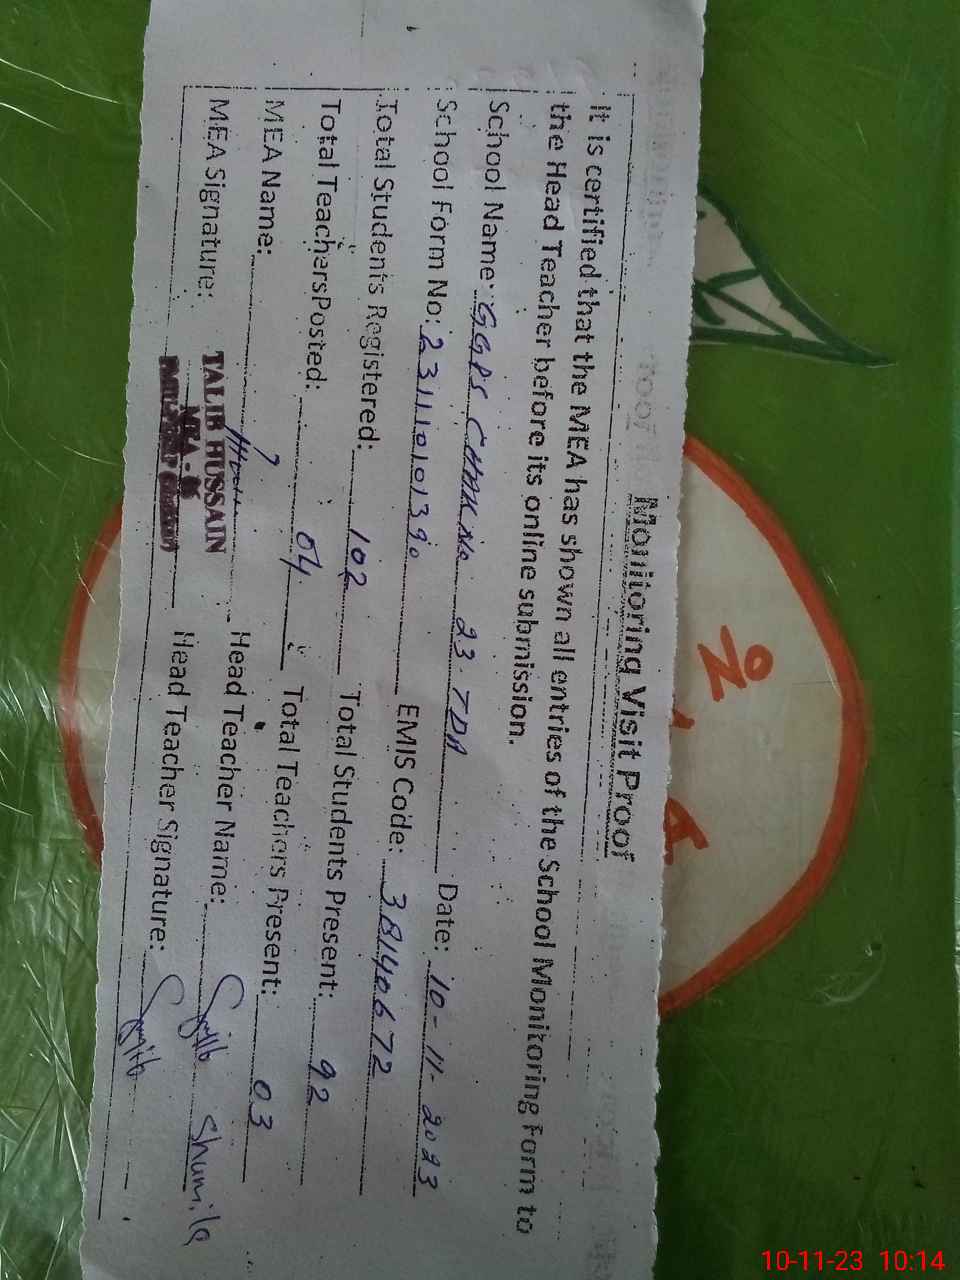 Monitoring Visit Proof
It is certified that the MEA has shown all entries of the School Monitoring Form to
the Head Teacher before its online submission.
School Name: GGPS CHAK No 23. TDA Date: 10-11-2023
School Form No: 23111010139 EMIS Code: 38140672
Total Students Registered: 102 Total Students Present: 92
Total TeachersPosted: 04 Total Teachers Present: 03
MEA Name: Head Teacher Name: Shumila
TALIB HUSSAIN
MEA Signature: Head Teacher Signature:
MEA -
No
10-11-23 10:14